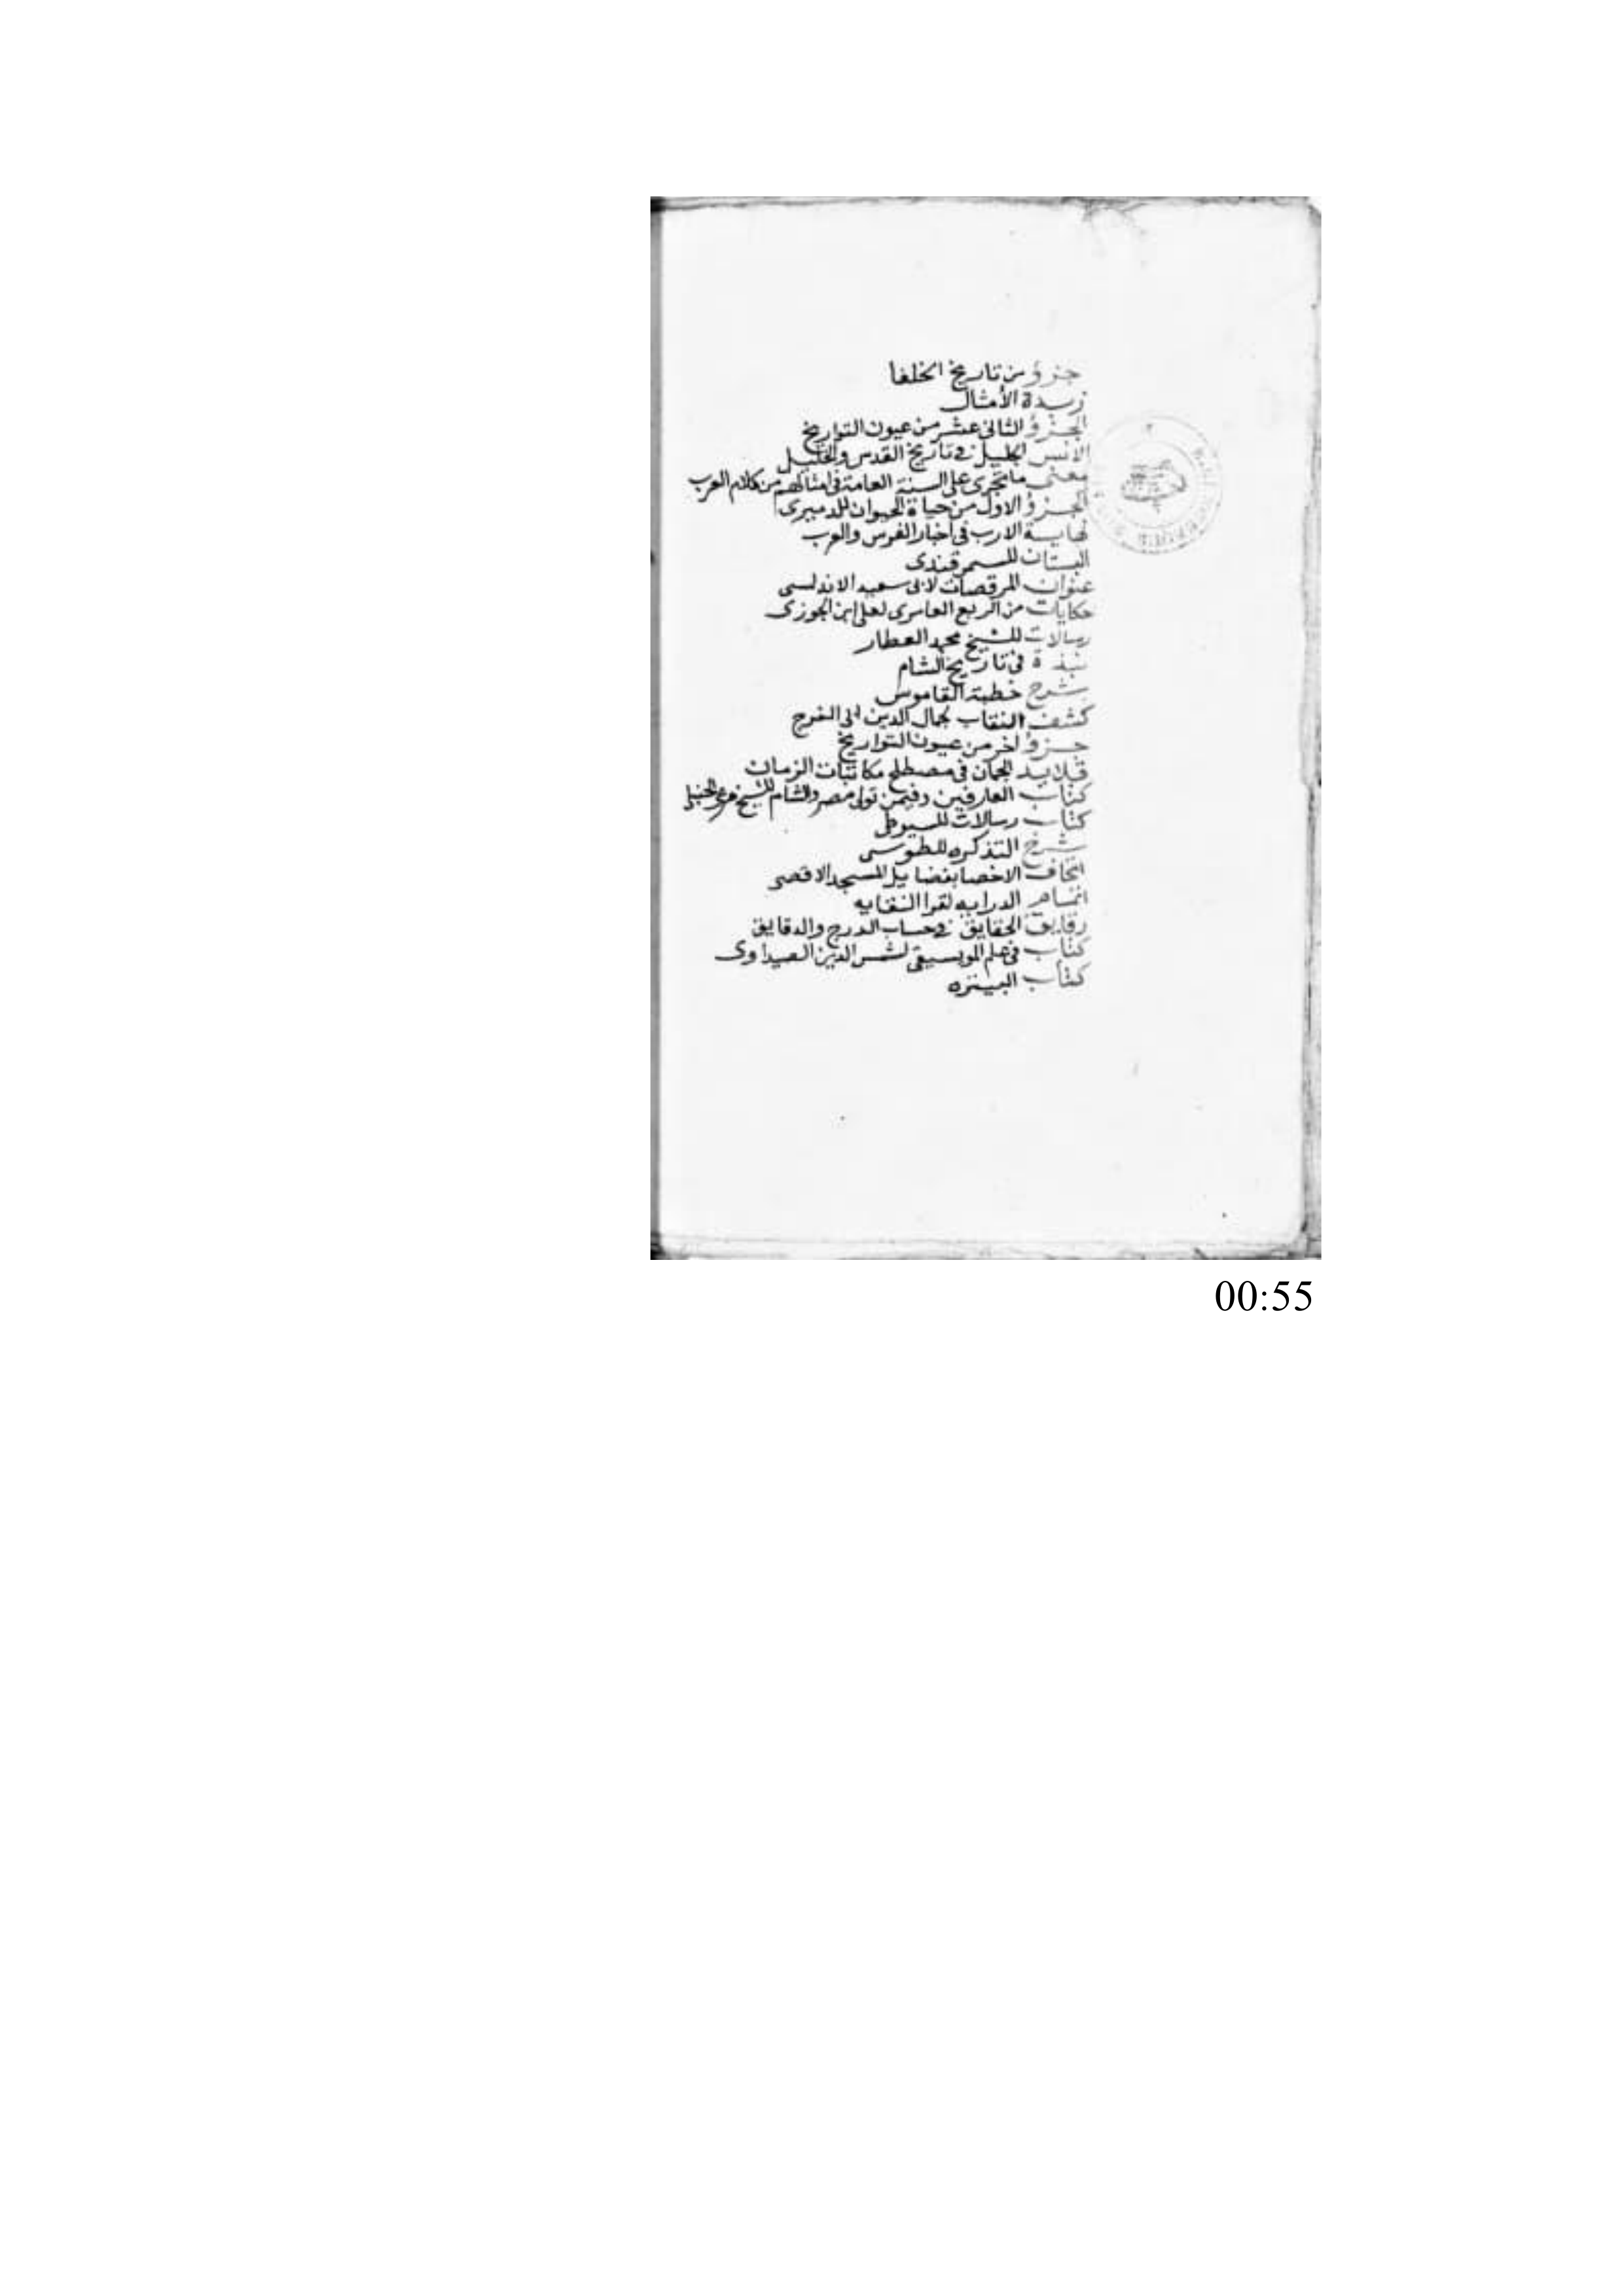 جزؤ من تاريخ الخلفا
زبدة الأمثال
الجزؤ الثانى عشر من عيون التواريخ
الانس الجليل فى تاريخ القدس والخليل
معنى ما تجرى على السنة العامة فى امثالهم من كلام العرب
الجزؤ الاول من حياة الحيوان للدميرى
نهاية الارب فى اخبار الفرس والعرب
البستان للسمرقندى
عنوان المرقصات لابى سعيد الاندلسى
حكايات من الربع العاسرى لعلى ابن الجوزى
رسالات للشيخ محمد العطار
نبذة فى تاريخ الشام
شرح خطبة القاموس
كشف النقاب لجمال الدين ابى الفرج
جزؤ اخر من عيون التواريخ
قلايد الجمان فى مصطلح مكاتبات الزمان
كتاب العارفين وفيمن تولى مصر والشام للشيخ مرعى الحنبلى
كتاب رسالات للسيوطى
شرح التذكره للطوسى
اتحاف الاخصا بفضايل المسجد الاقصى
اتمام الدرايه لقرا النقايه
رقايق الحقايق فى حساب الدرج والدقايق
كتاب فى علم الموسيقى لشمس الدين الصيداوى
كتاب البيزره
00:55